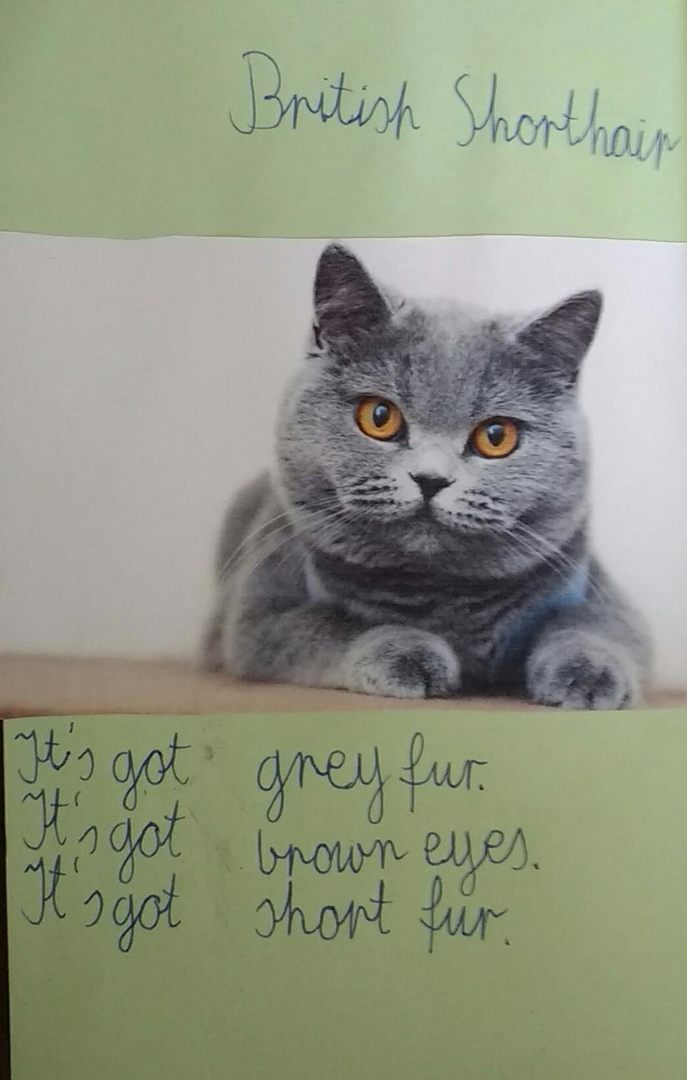 British Shorthair
It's got grey fur.
It's got brown eyes.
It's got short fur.